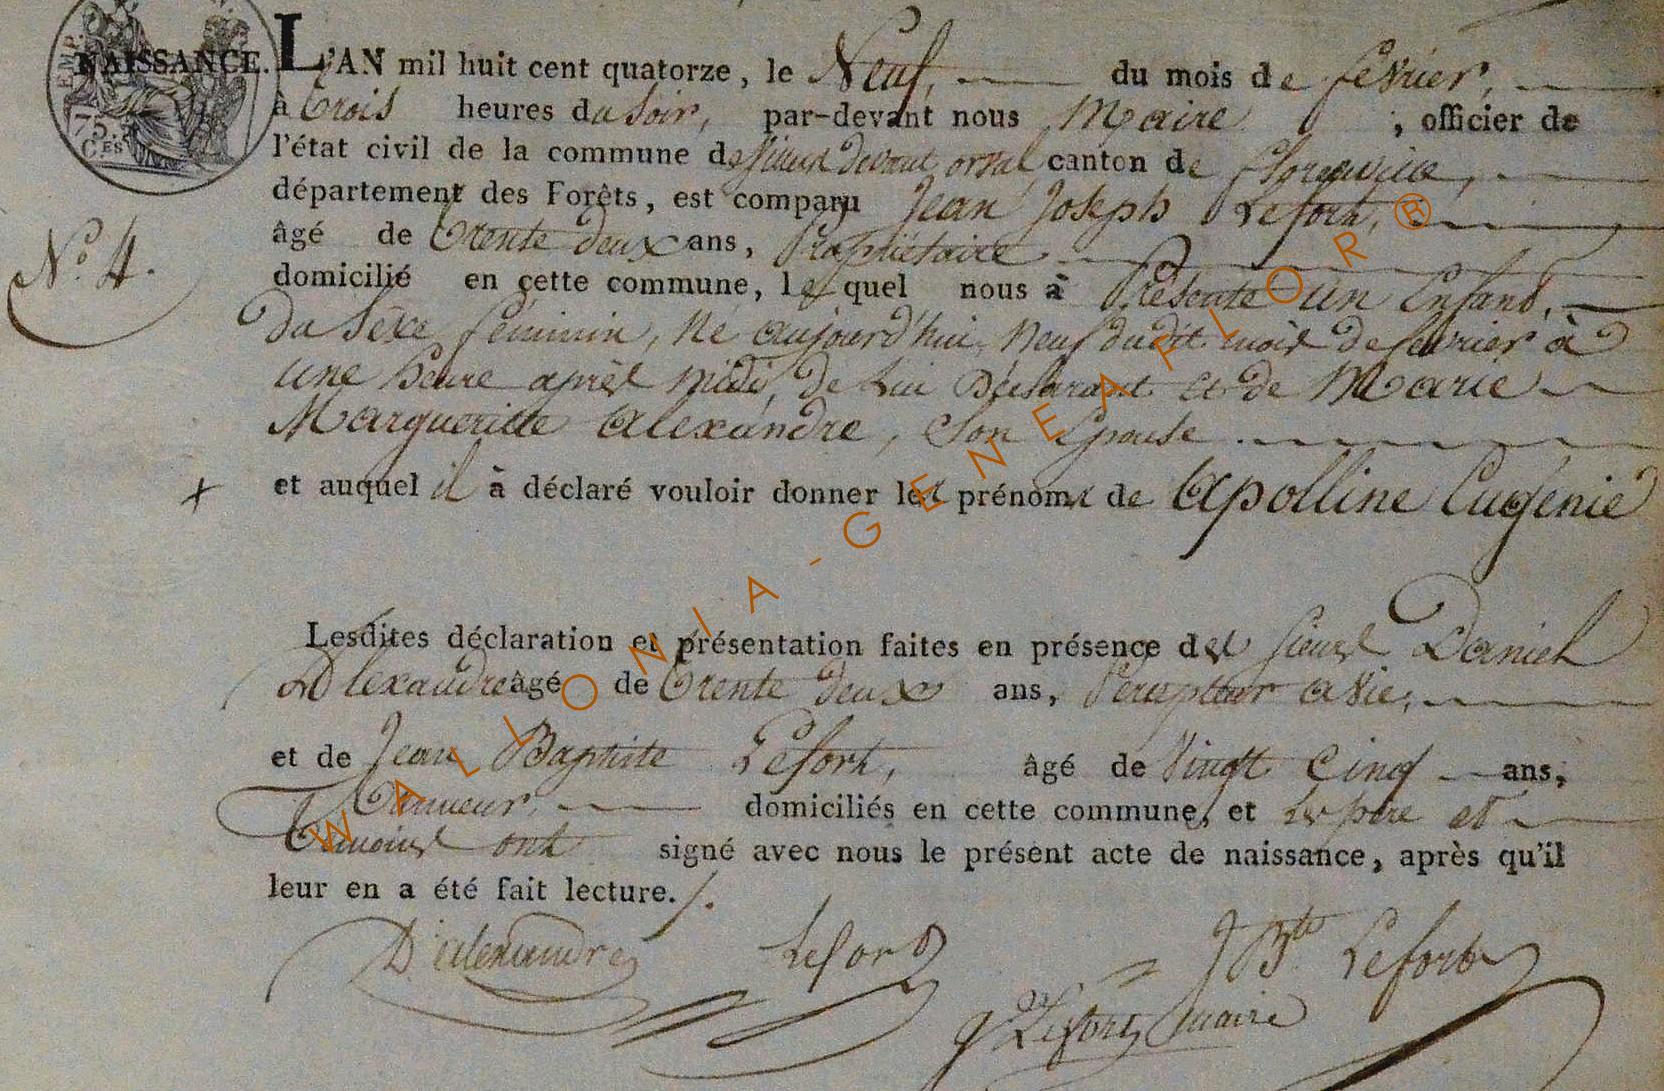 EMP.
75.
C.ES
NAISSANCE.
L'AN mil huit cent quatorze, le Neuf, du mois de fevrier,
à trois heures du soir, par-devant nous Maire, officier de
l'état civil de la commune de Villers devant orval canton de florenville,
département des Forêts, est comparu Jean Joseph Lefort,
âgé de trente deux ans, Propriétaire
N.o 4.
domicilié en cette commune, le quel nous à Présenté un Enfant,
du sexe féminin, né aujourd'hui neuf dudit mois de fevrier à
une heure après midi, de lui Déclarant et de Marie
Margueritte Alexandre, Son Epouse.
et auquel il à déclaré vouloir donner les prénoms de Apolline Eugénie
Lesdites déclaration et présentation faites en présence des sieurs Daniel
Alexandre âgé de trente deux ans, Percepteur a vie,
et de Jean Baptite Lefort, âgé de Vingt Cinq ans,
domiciliés en cette commune, et Le père et
temoins ont signé avec nous le présent acte de naissance, après qu'il
leur en a été fait lecture./.
D. alexandre Lefort J Bte Lefort
Lefort maire
WALLONIA-GENEAPLOR®